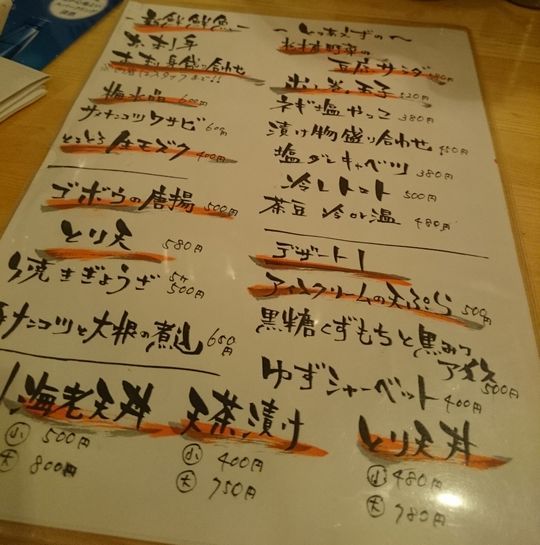 お刺身
お刺身盛り合わせ
梅水晶 600円
サメナンコツワサビ 600円
生モズク 400円
ゴボウの唐揚 500円
とり天 580円
焼きぎょうざ 5ヶ 500円
ナンコツと大根の煮込 650円
小海老天丼
小 500円
大 800円
天茶漬け
小 400円
大 750円
〜とりあえずの〜
豆腐サラダ
出し巻玉子 520円
ネギ塩やっこ 380円
漬け物盛り合わせ 450円
塩ダレキャベツ 380円
冷しトマト 500円
茶豆 冷or温 480円
デザート!
アイスクリームの天ぷら 500円
黒糖くずもちと黒みつ
アイス 500円
ゆずシャーベット 400円
とり天丼
小 480円
大 780円